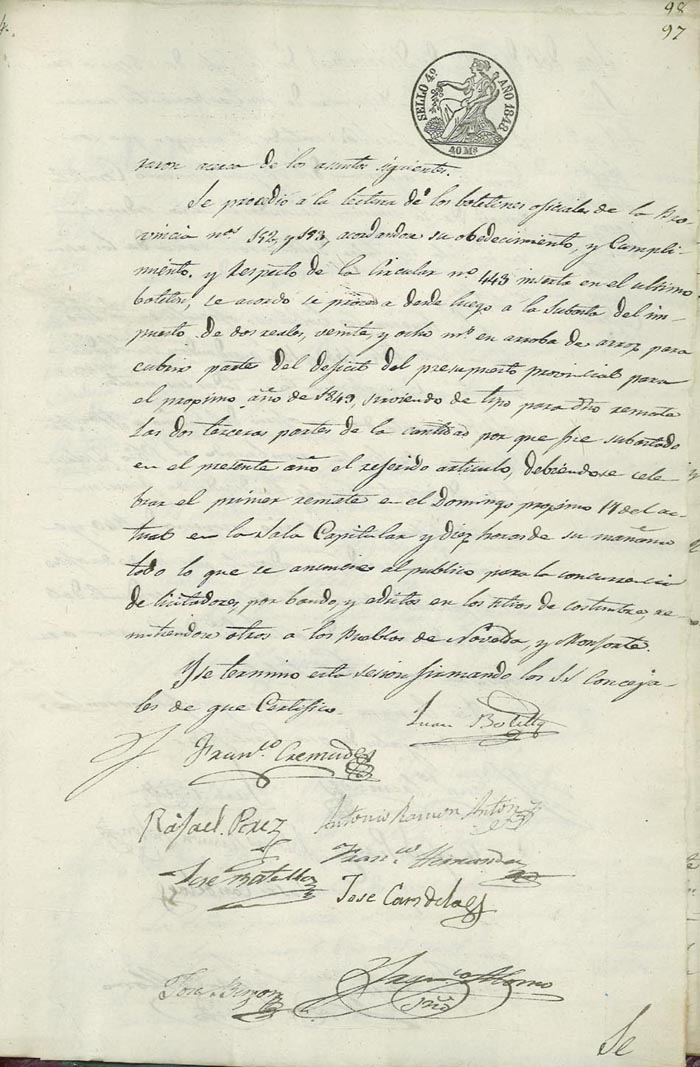 98
97
SELLO 4º AÑO 1848
40 Ms
raron acerca de los asuntos siguientes.
Se procedió á la lectura de los boletines oficiales de la Pro-
vincia nos 152, y 153, acordandose su obedecimiento, y Cumpli-
miento. y respecto de la Circular nº 443 inserta en el ultimo
boletin, se acordo se proceda desde luego a la Subasta del im-
puesto de dos reales, veinte, y ocho ms en arroba de arroz para
cubrir parte del deficit del presupuesto provincial para
el procsimo año de 1849, sirviendo de tipo para dho remate
las dos terceras partes de la cantidad por que fue subastado
en el presente año el referido articulo, debiendose cele-
brar el primer remate en el Domingo procsimo 17 del ac-
tual en la Sala Capitular y diez horas de su mañana
todo lo que se anuncie al publico para la concurrencia
de licitadores, por bando, y edictos en los sitios de costumbre, re-
mitiendose otros á los Pueblos de Novelda, y Monforte.
Y se termino esta sesion firmando los SS Conceja-
les de que Certifico.
Juan Botella
Franco Cremades
Rafael Perez
Antonio Ramon Antón
José Botella
Franco Hernandez
Jose Candela
Srio
Se